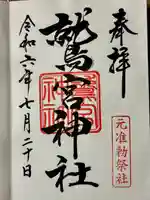 奉拝
元准勅祭社
鷲宮神社
令和六年七月二十日